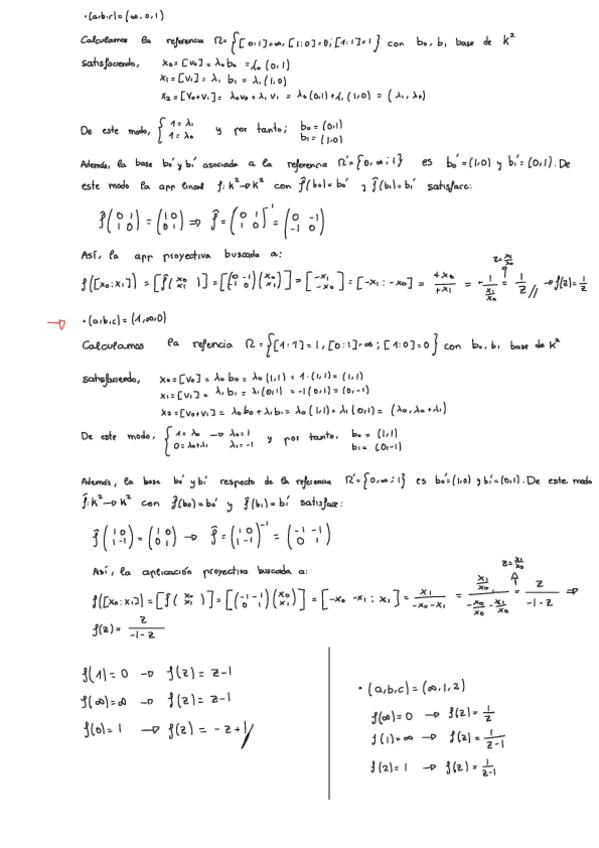 • (a,b,c) = (∞, 0, 1)
Calculamos la referencia R = {[0:1]=∞, [1:0]=0; [1:1]=1} con b₀, b₁ base de K²
satisfaciendo, x₀ = [v₀] = λ₀ b₀ = λ₀ (0,1)
x₁ = [v₁] = λ₁ b₁ = λ₁ (1,0)
x₂ = [v₀+v₁] = λ₀v₀ + λ₁ v₁ = λ₀ (0,1) + λ₁ (1,0) = (λ₁, λ₀)
De este modo, { 1 = λ₁ 1 = λ₀ y por tanto; b₀ = (0,1) b₁ = (1,0)
Además, la base b₀' y b₁' asociada a la referencia R' = {0, ∞; 1} es b₀' = (1,0) y b₁' = (0,1). De
este modo la app lineal f̂: K² → K² con f̂(b₀) = b₀' y f̂(b₁) = b₁' satisface:
f̂ (0 1 / 1 0) = (1 0 / 0 1) ⇒ f̂ = (0 1 / 1 0)⁻¹ = (0 -1 / -1 0)
Así, la app proyectiva buscada a:
z = x₁/x₀
f([x₀:x₁]) = [f̂(x₀ / x₁)] = [(0 -1 / -1 0)(x₀ / x₁)] = [-x₁ / -x₀] = [-x₁ : -x₀] = +x₀/+x₁ = 1/(x₁/x₀) = 1/z // → f(z) = 1/z
→ • (a,b,c) = (1, ∞, 0)
Calculamos la refencia R = {[1:1] = 1, [0:1] = ∞; [1:0] = 0} con b₀, b₁ base de K²
satisfaciendo, x₀ = [v₀] = λ₀ b₀ = λ₀ (1,1) = 1·(1,1) = (1,1)
x₁ = [v₁] = λ₁ b₁ = λ₁ (0,1) = -1 (0,1) = (0,-1)
x₂ = [v₀+v₁] = λ₀ b₀ + λ₁ b₁ = λ₀ (1,1) + λ₁ (0,1) = (λ₀, λ₀+λ₁)
De este modo, { 1 = λ₀ → λ₀ = 1 0 = λ₀+λ₁ λ₁ = -1 y por tanto, b₀ = (1,1) b₁ = (0,-1)
Además, la base b₀' y b₁' respecto de la referencia R' = {0, ∞; 1} es b₀' = (1,0) y b₁' = (0,1). De este modo
f̂: K² → K² con f̂(b₀) = b₀' y f̂(b₁) = b₁' satisface:
f̂ (1 0 / 1 -1) = (1 0 / 0 1) → f̂ = (1 0 / 1 -1)⁻¹ = (-1 -1 / 0 1)
Así, la aplicación proyectiva buscada a:
z = x₁/x₀
f([x₀:x₁]) = [f̂(x₀ / x₁)] = [(-1 -1 / 0 1)(x₀ / x₁)] = [-x₀ -x₁ : x₁] = x₁/(-x₀-x₁) = (x₁/x₀)/(-x₀/x₀ - x₁/x₀) = z/(-1-z) ⇒
f(z) = z/(-1-z)
f(1) = 0 → f(z) = z-1
f(∞) = ∞ → f(z) = z-1
f(0) = 1 → f(z) = -z+1 //
• (a,b,c) = (∞, 1, 2)
f(∞) = 0 → f(z) = 1/z
f(1) = ∞ → f(z) = 1/(z-1)
f(2) = 1 → f(z) = 1/(z-1)